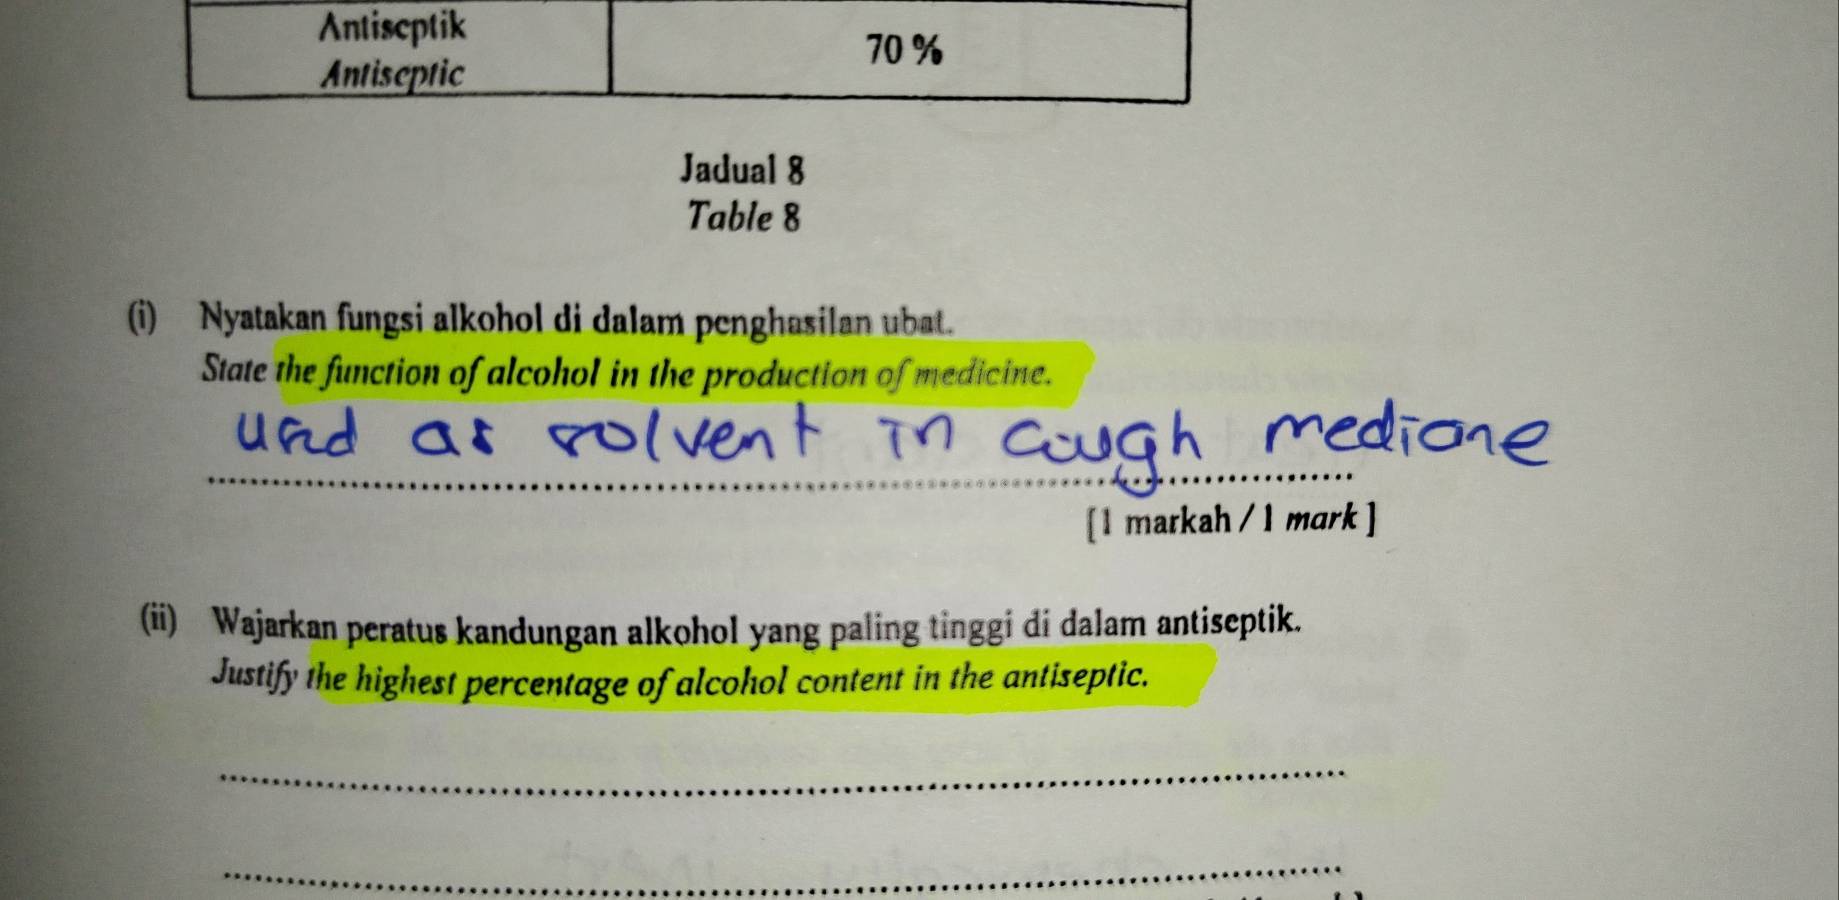 Antiseptik
Antiseptic
70 %
Jadual 8
Table 8
(i) Nyatakan fungsi alkohol di dalam penghasilan ubat.
State the function of alcohol in the production of medicine.
used as solvent in cough medicine
[1 markah / 1 mark ]
(ii) Wajarkan peratus kandungan alkohol yang paling tinggi di dalam antiseptik.
Justify the highest percentage of alcohol content in the antiseptic.